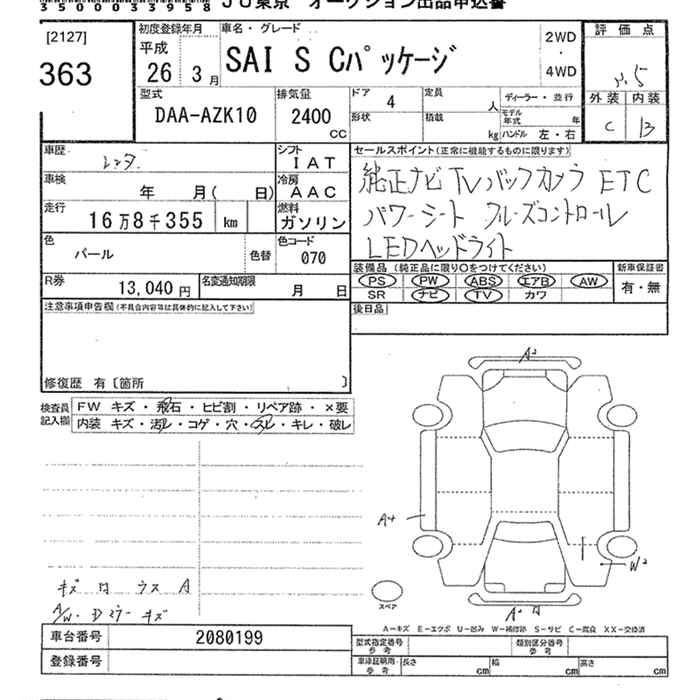 3500033958 JU東京 オークション出品申込書
[2127]
363
初度登録年月
平成
26 3月
車名・グレード
SAI S Cパッケージ
2WD
・
4WD
評価点
外装 内装
C B
型式
DAA-AZK10
排気量
2400
CC
ドア 4
定員 人
形状
積載 kg
ディーラー・並行
モデル年式 年
ハンドル 左・右
車歴
レンタ
車検 年 月( 日)
走行 16万8千355 km
シフト IAT
冷房 AAC
燃料 ガソリン
セールスポイント(正常に機能するものに限ります)
純正ナビ TV バックカメラ ETC
パワーシート クルーズコントロール
LEDヘッドライト
色
パール
色替
色コード
070
R券
13,040 円
名変通知期限
月 日
装備品 (純正品に限り○をつけてください)
PS PW ABS エアB AW
SR ナビ TV カワ
新車保証書
有・無
注意事項申告欄(不具合内容等は具体的に記入して下さい)
後日品
修復歴 有〔箇所 〕
検査員記入欄
FW キズ・飛石・ヒビ割・リペア跡・×要
内装 キズ・汚レ・コゲ・穴・スレ・キレ・破レ
A2
A4
W2
キズ ウス A
A/W・Dミラー キズ
スペア
A-キズ E-エクボ U-凹み W-補修跡 S-サビ C-腐食 XX-交換済
車台番号 2080199
登録番号
型式指定番号
参考
類別区分番号
参考
車庫証明用・参考
長さ cm
幅 cm
高さ cm